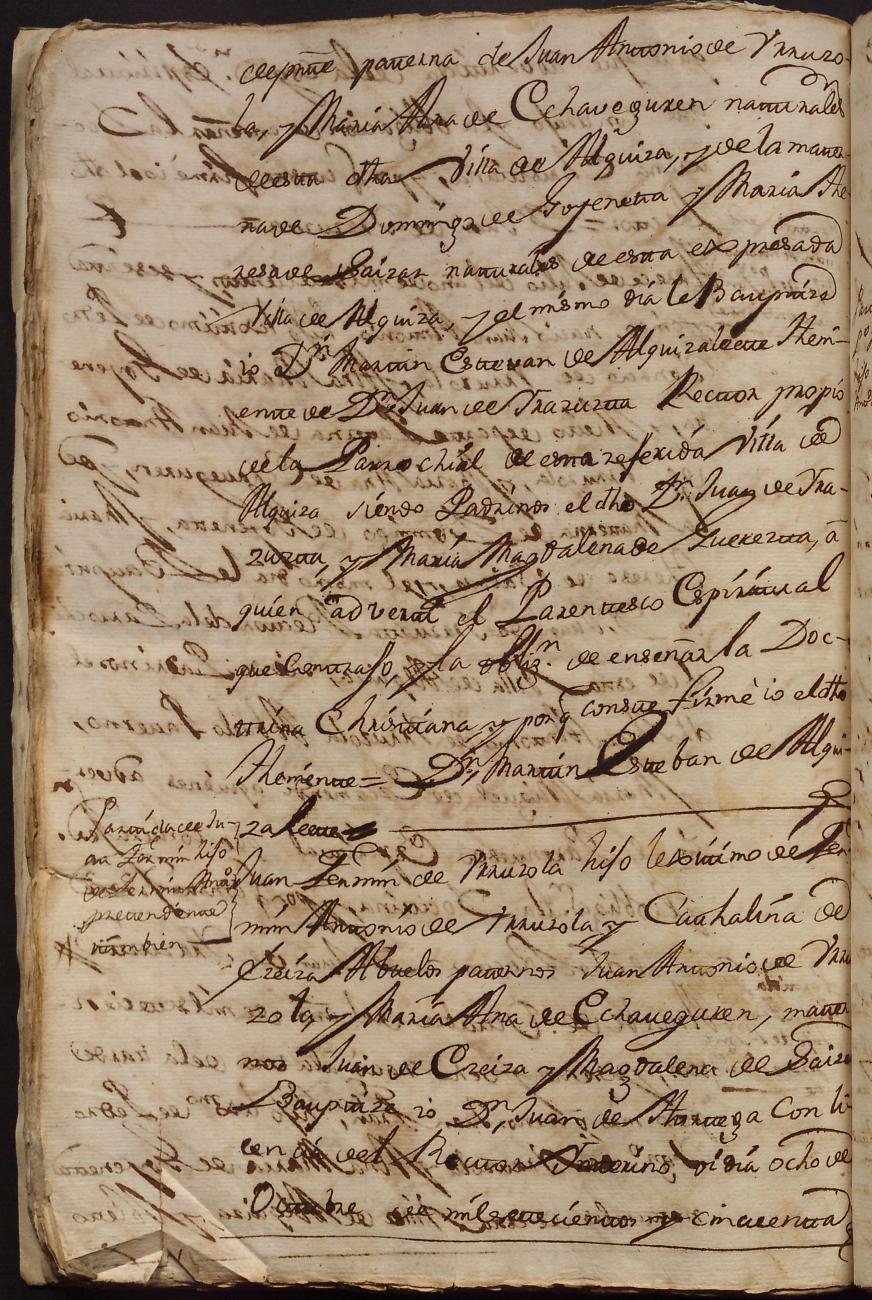 de pte paterna de Juan Antonio de Yrruzo-
la, y Maria Ana de Echaveguren naturales
de esta dha Villa de Alquiza, y de la mater-
na de Domingo de Goyeneta y Maria The-
resa de Saizar naturales de esta expresada
Villa de Alquiza, y el mismo dia le Baupti-
io Dn Martin Estevan de Alquizalette Theni-
ente de Dn Juan de Trazuzta Rector propio
de la Parrochial de esta referida Villa de
Alquiza siendo Padrinos el dho Dn Juan de Tra-
zuzta, y Maria Magdalena de Guerezta, à
quien advertí el Parentesco Espiritual
que contraxo, y la oblign. de enseñar la Doc-
trina Christiana y porq conste firmè io el dho
Theniente = Dn Martin Esteban de Alqui-
zalette
Partida de Ju-
an Fermin hijo
de Fermin Antº
pretendente
tambien
Juan Fermin de Yrruzola hijo lexitimo de Fer-
min Antonio de Yrruzola y Cathalina de
Ereiza Abuelos paternos Juan Antonio de Yrru
zola, y Maria Ana de Echaveguren, mater
nos Juan de Ereiza y Magdalena de Saizar
Baupticè io Dn Juan de Iturzga con li-
cencia del Rector Interino oi dia ocho de
Octubre de mil setecientos y cincuenta